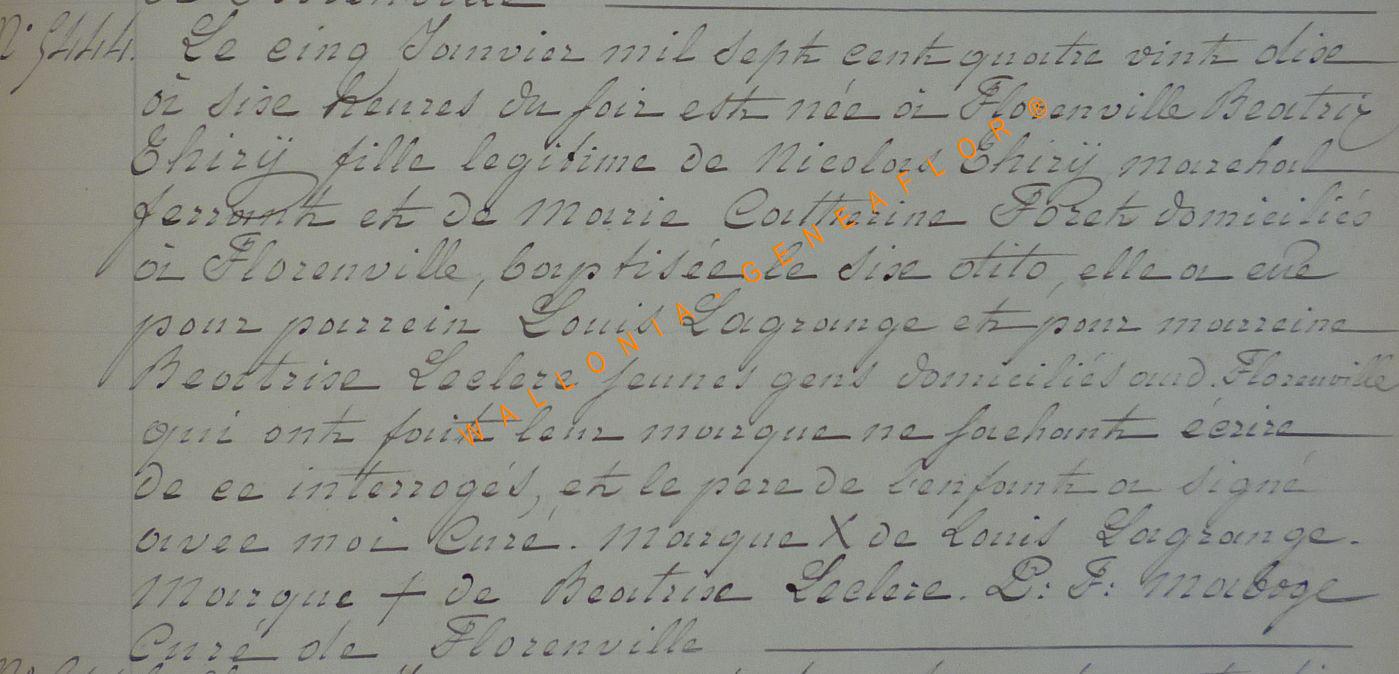 N° 5444. Le cinq Janvier mil sept cent quatre vint dixe
à sixe heures du soir est née à Florenville Beatrix
Thirÿ fille legitime de Nicolas Thirÿ marchal
ferrant et de Marie Catherine Foret domiciliés
à Florenville, baptisée le sixe dito, elle a eue
pour parrein Louis Lagrange et pour marreine
Beatrixe Leclere jeunes gens domiciliés aud. Florenville
qui ont fait leur marque ne sachant écrire
de ce interrogés, et le pere de l'enfant a signé
avec moi Curé. Marque X de Louis Lagrange.
Marque + de Beatrixe Leclere. P: F: Maboge
Curé de Florenville
WALLONIA - GENEAFLOR ®